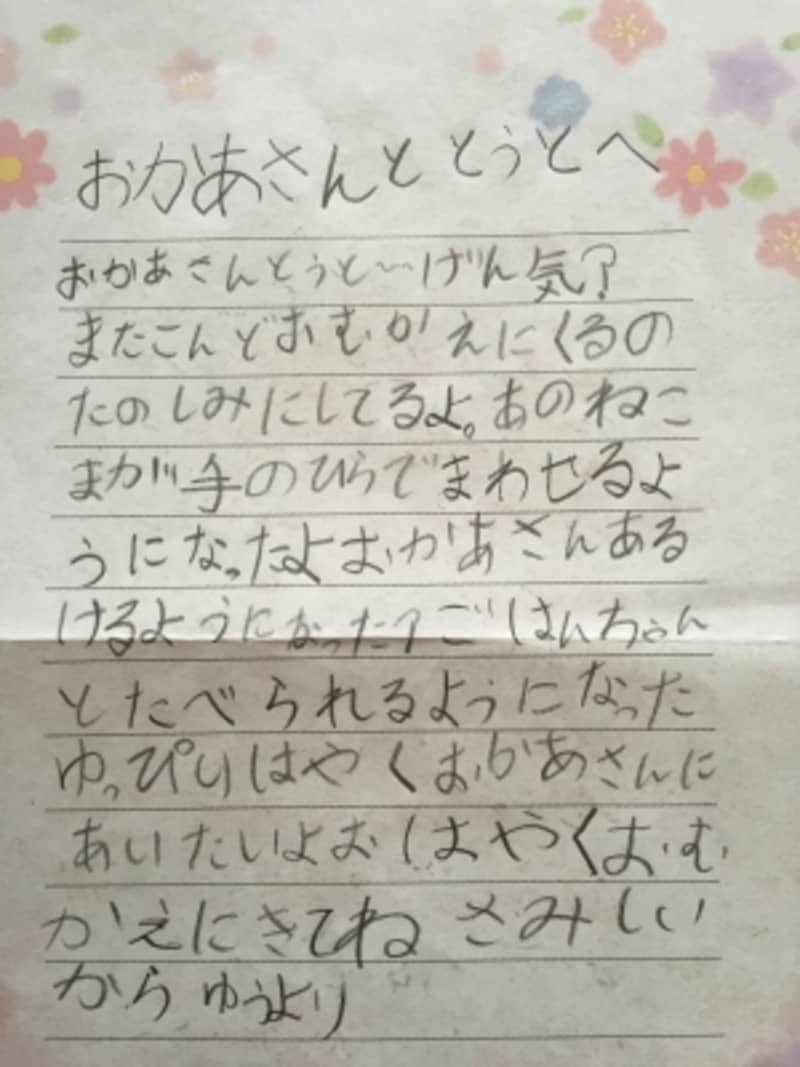 おかあさんととうとへ
おかあさんとうと〜げん気?
またこんどおむかえにくるの
たのしみにしてるよ。あのねこ
まが手のひらでまわせるよ
うになったよおかあさんある
けるようになった?ごはんちゃん
とたべられるようになった
ゆっぴりはやくおかあさんに
あいたいよおはやくおむ
かえにきてねさみしい
からゆうより